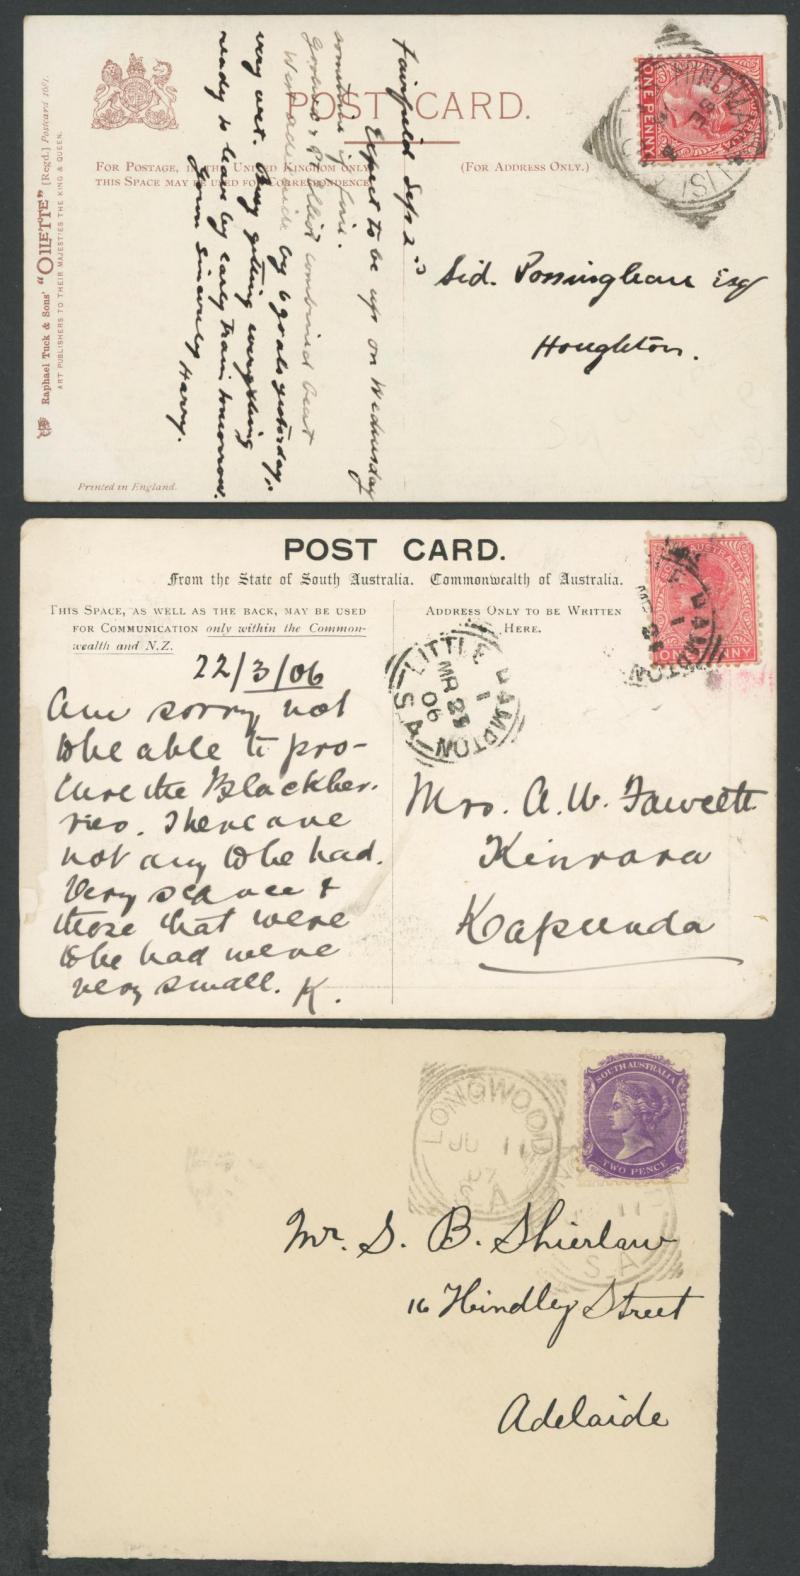 POST CARD.
FOR POSTAGE, IN THE UNITED KINGDOM ONLY,
THIS SPACE MAY BE USED FOR CORRESPONDENCE
(FOR ADDRESS ONLY.)
Raphael Tuck & Sons' "OILETTE" [Regd.] Postcard 1681.
ART PUBLISHERS TO THEIR MAJESTIES THE KING & QUEEN.
Printed in England.
Fairfield Sept 2
Expect to be up on Wednesday
sometime if fine.
combined beat
by 6 goals yesterday,
very wet. Busy getting everything
ready to leave by early train tomorrow.
Yours Sincerely Harry.
Sid. Possingham Esq
Houghton.
ONE PENNY
POST CARD.
From the State of South Australia. Commonwealth of Australia.
THIS SPACE, AS WELL AS THE BACK, MAY BE USED
FOR COMMUNICATION only within the Common-
wealth and N.Z.
ADDRESS ONLY TO BE WRITTEN
HERE.
22/3/06
Am sorry not
to be able to pro-
cure the Blackber.
ries. There are
not any to be had.
Very scarce &
those that were
to be had were
very small. K.
LITTLE HAMPTON
1
MR 23
06
S.A
Mrs. A. W. Fawcett
Kinrara
Kapunda
SOUTH AUSTRALIA
TWO PENCE
LONGWOOD
JU 11
07
S.A
Mr. S. B. Shierlaw
16 Hindley Street
Adelaide